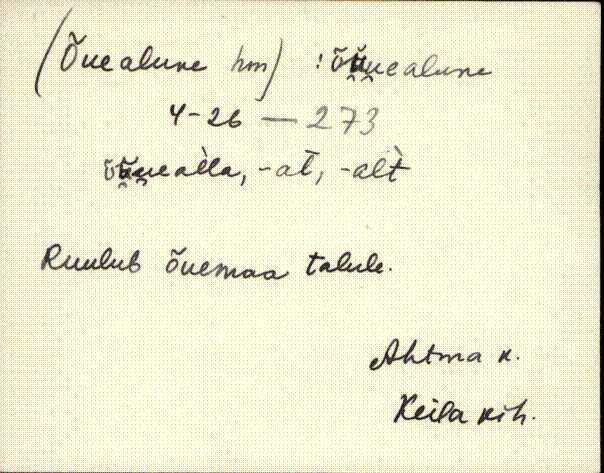 (Õuealune hm) : õu̯u̯ealune
4-26 — 273
õu̯u̯eal̀la, -at̄, -alt̀
Kuulub õuemaa talule.
Ahtma k.
Keila kih.